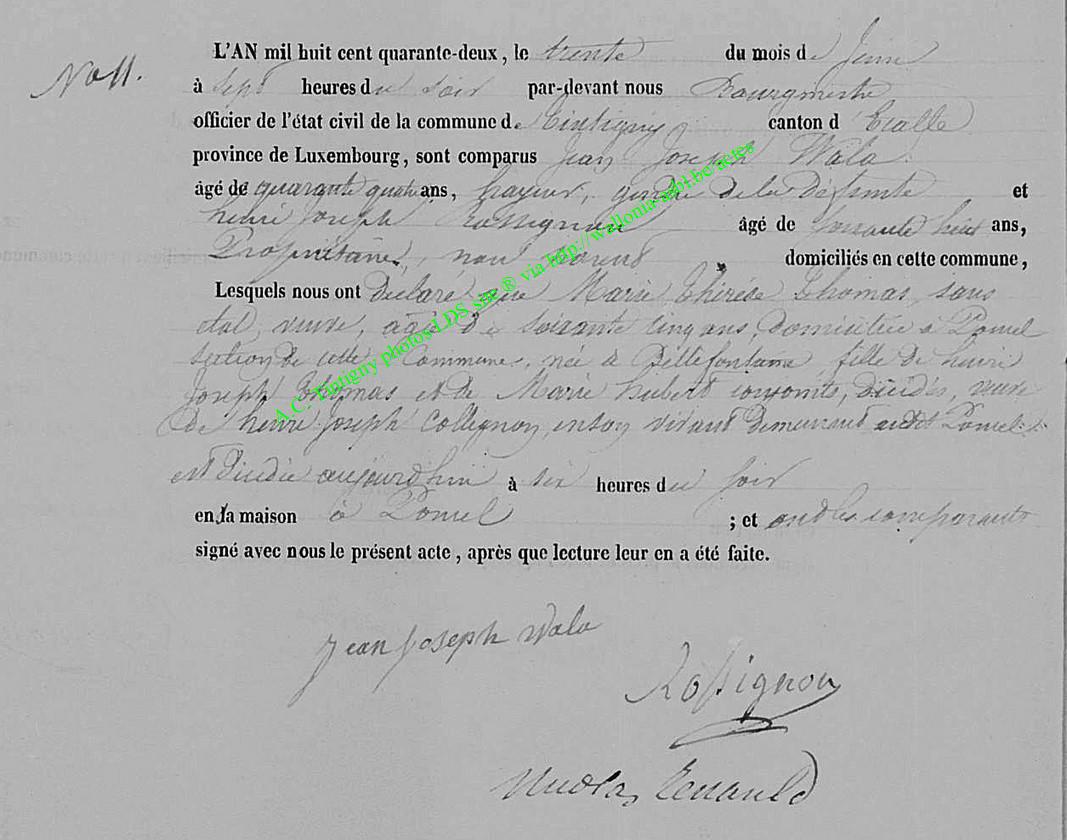 No 11.
L'AN mil huit cent quarante-deux, le trente du mois de Juin
à sept heures du soir par-devant nous Bourgmestre
officier de l'état civil de la commune de Tintigny canton d'Etalle
province de Luxembourg, sont comparus Jean Joseph Wala
âgé de quarante quatre ans, gendre de la défunte et
henri Joseph Rossignon âgé de soixante huit ans,
Propriétaire, non parent domiciliés en cette commune,
Lesquels nous ont déclaré que Marie Thérèse Thomas, sans
état, veuve, âgée de soixante cinq ans, domiciliée à Poncel
section de cette Commune, née à Bellefontaine fille de henri
Joseph Thomas et de Marie hubert conjoints, décédés, veuve
de henri Joseph Collignon, en son vivant demeurant audit Poncel
est décédée aujourd'hui à six heures du soir
en sa maison à Poncel ; et ont les comparants
signé avec nous le présent acte, après que lecture leur en a été faite.
A.C. Tintigny photos LDS site ® via http://wallonia-asbl.be/actes
Jean Joseph Wala
Rossignon